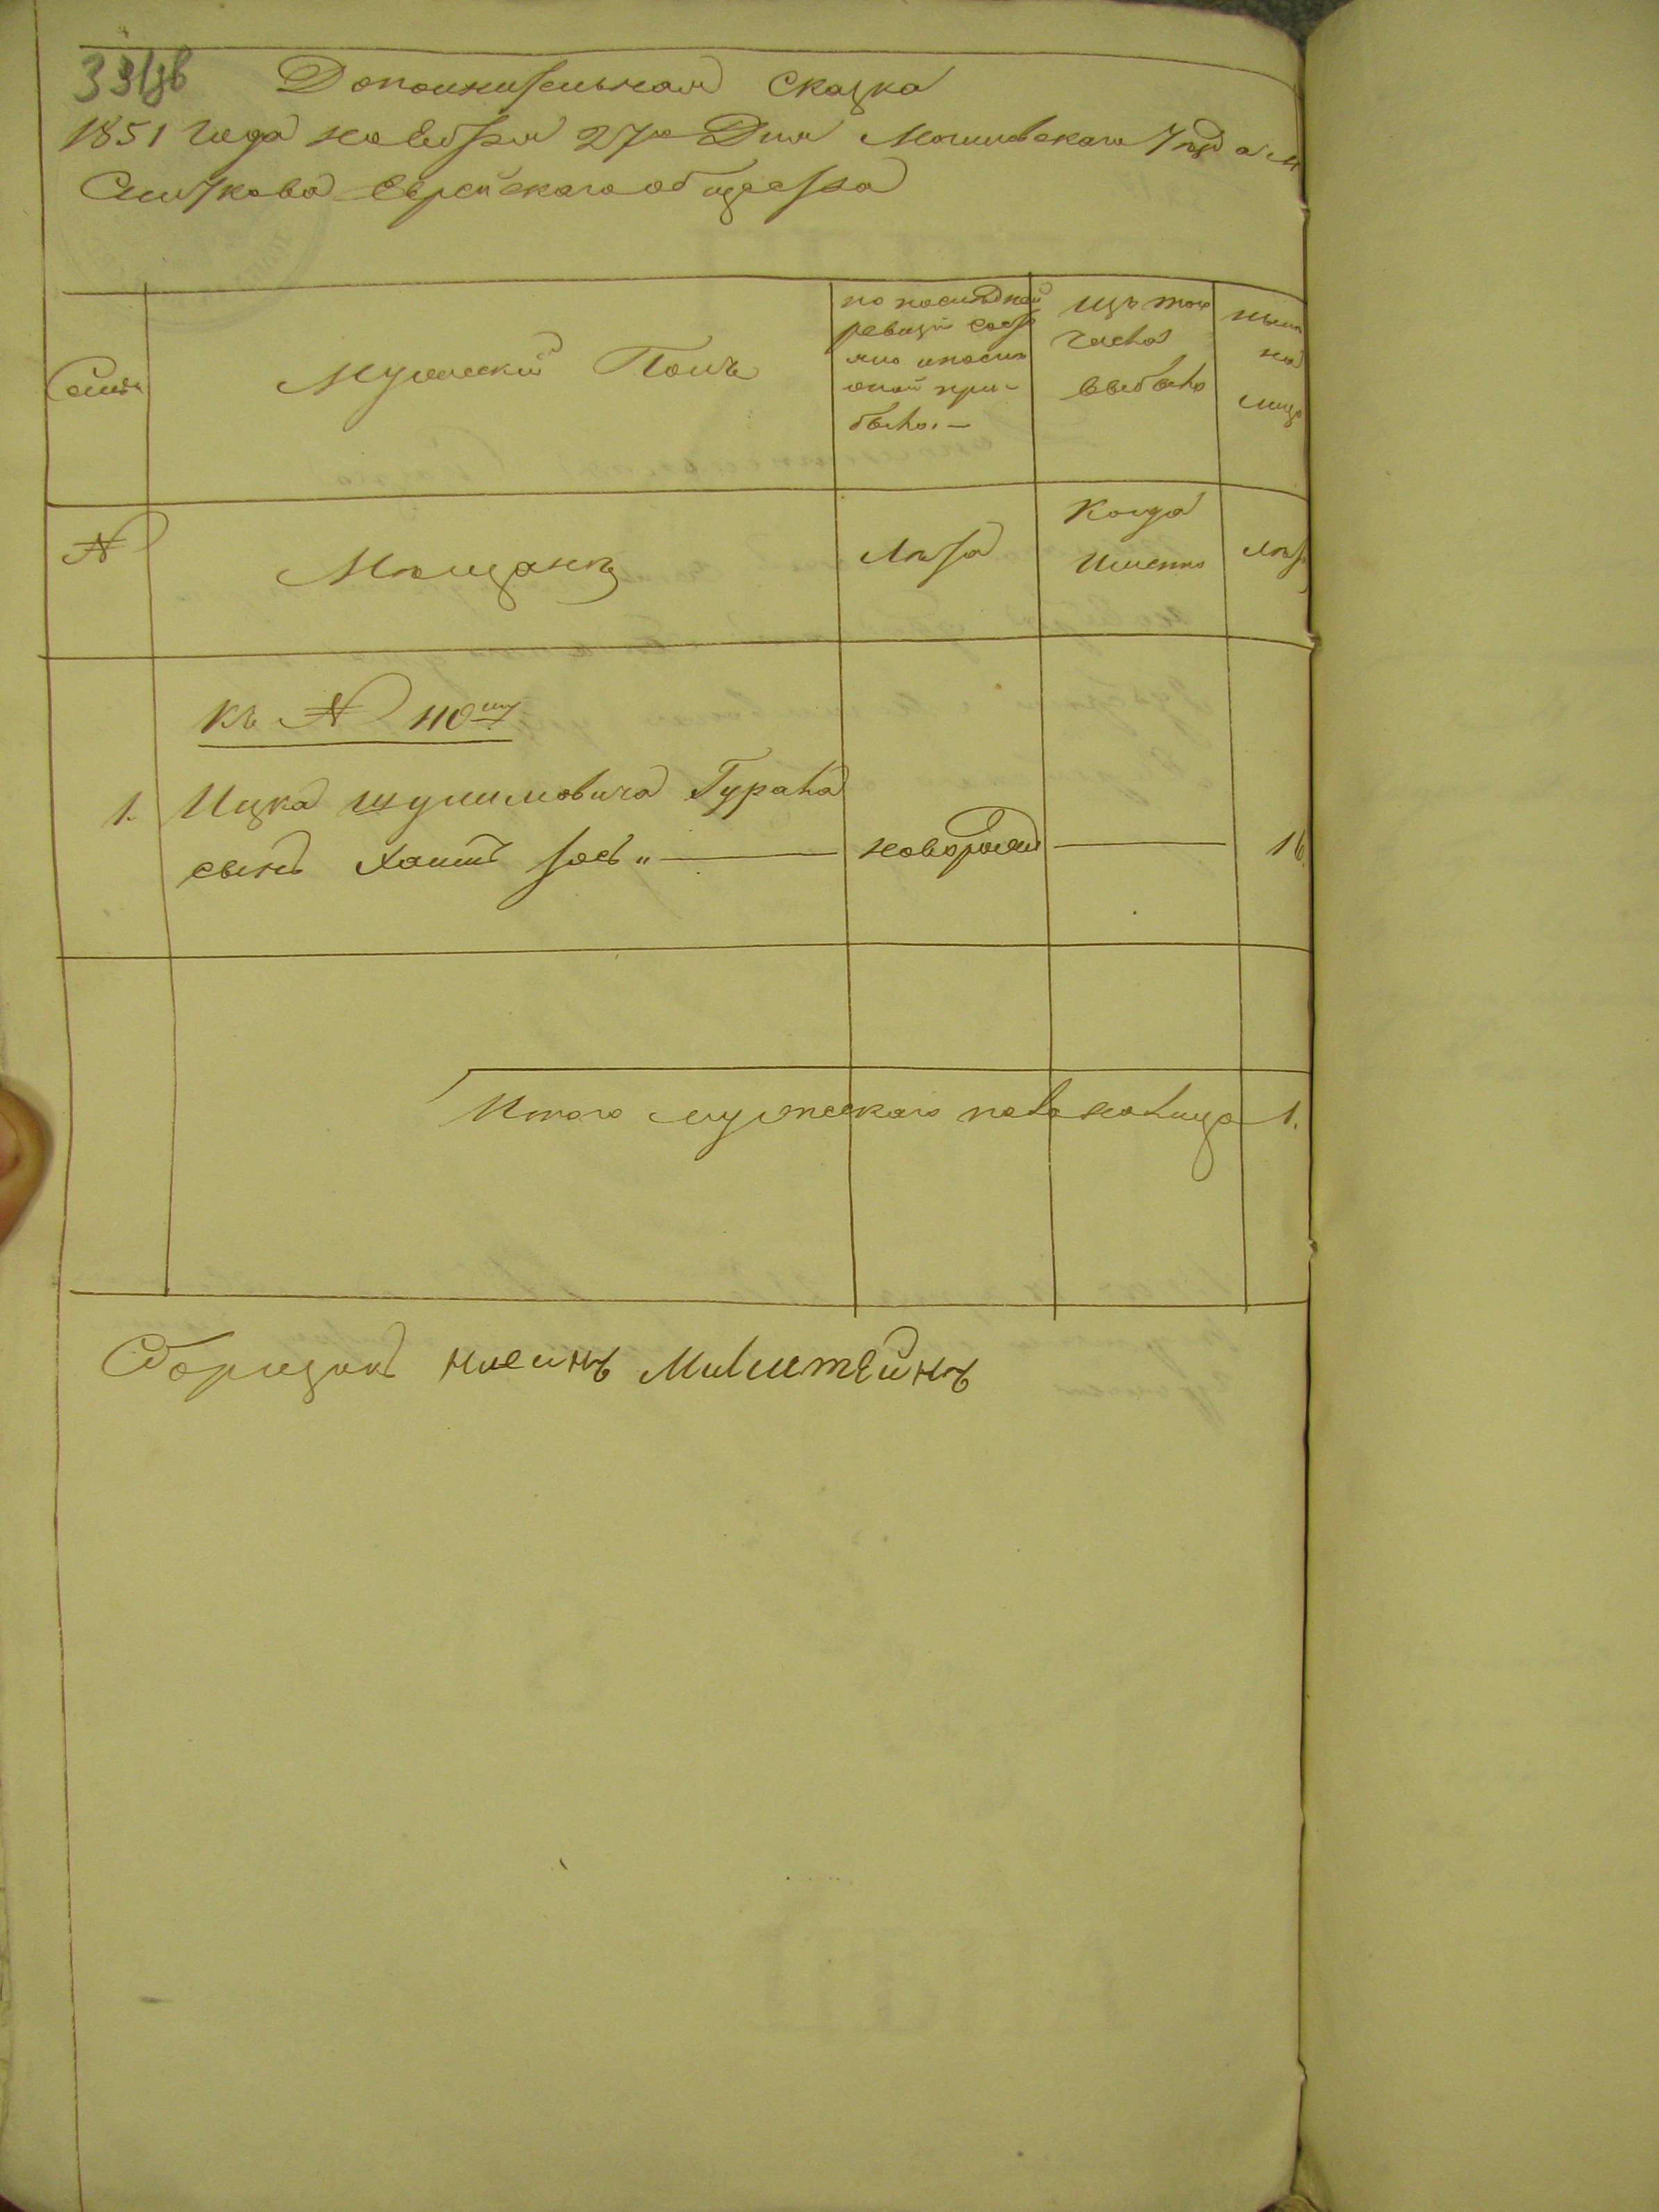 Дополнительная Сказка
1851 года ноября 27го Дня Могилевскаго Уезда м
Сниткова Еврейскаго общества
Семьи
Мужеский Полъ
по последней ревизии состояло и после оной прибыло. —
изъ того числа выбыло
ныне на лицо
№
Мещанъ
Лета
Когда Именно
Лета
Къ № 110му
1. Ицка Шулимовича Гурала
сынъ Хаимъ новорожд 16.
Итого мужескаго пола налицо 1.
Сборщикъ Мильштейнъ